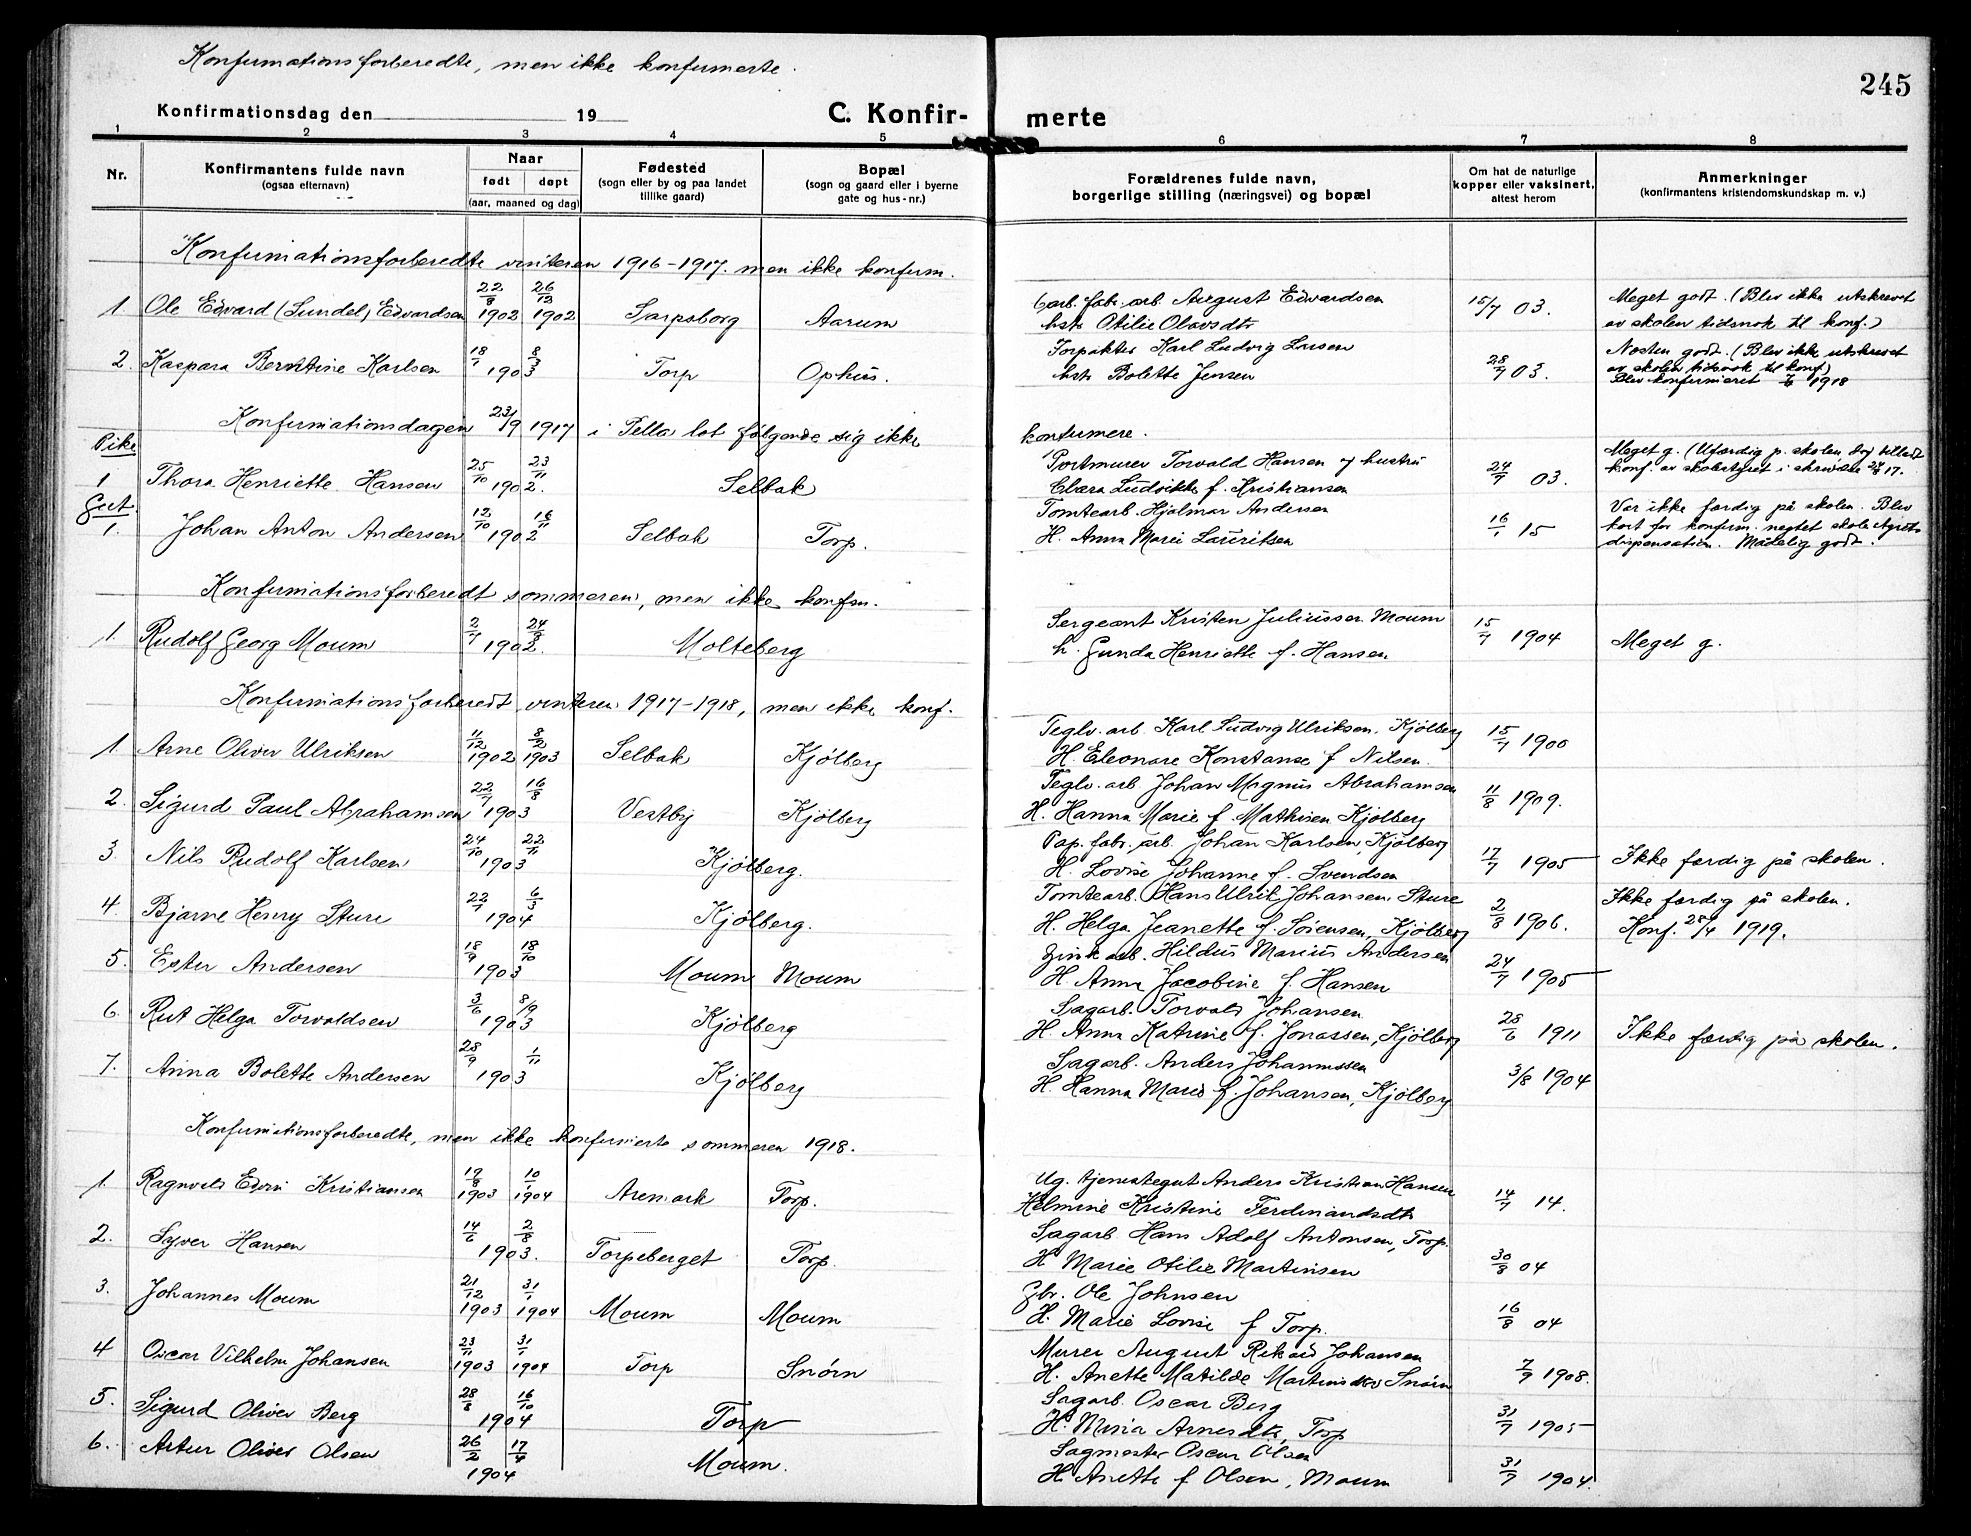 Konfirmationsforberedte, men ikke konfirmerte.
245
Konfirmationsdag den 19
C. Konfir- merte
1 2 3 4 5 6 7 8
Nr. Konfirmantens fulde navn (ogsaa efternavn) Naar født døpt (aar, maaned og dag) Fødested (sogn eller by og paa landet tillike gaard) Bopæl (sogn og gaard eller i byerne gate og hus-nr.) Forældrenes fulde navn, borgerlige stilling (næringsvei) og bopæl Om hat de naturlige kopper eller vaksinert, attest herom Anmerkninger (konfirmantens kristendomskundskap m. v.)
Konfirmationsforberedte vinteren 1916-1917. men ikke konfirm.
1. Ole Edvard (Lundel) Edvardsen 22/9 1902 26/12 1902 Sarpsborg Aarum Carb. fabr. arb. August Edvardsen 15/7 03. Meget godt. (Blev ikke utskrevet
hstr Otilie Olavsdtr av skolen tidsnok til konf.)
2. Kaspara Berntine Karlsen 18/1 8/3 1903 Torp Ophus. Torpakter Karl Ludvig Larsen 28/7 03. Næsten godt. (Blev ikke utskrevet
hstr Bolette Jensen av skolen tidsnok til konf.)
Blev konfirmeret 1918
Konfirmationsdagen 23/9 1917 i Pella lot følgende sig ikke konfirmere.
Pike
1 Thora Henriette Hansen 25/10 23/11 1902. Selbak Portmurer Torvald Hansen og hustru 24/7 03. Meget g. (Ufærdig p. skolen, dog tilladt
Clara Ludvikke f. Kristiansen konf. av skolestyret i skrivelse 17.
Gut.
1. Johan Anton Andersen 12/10 16/11 1902 Selbak Torp. Tomtearb. Hjalmar Andersen 16/1 15 Var ikke færdig på skolen. Blev
H. Anna Marie Lauritsen kort før konfirm. negtet skole
dispensation. Mådelig godt.
Konfirmationsforberedt sommeren, men ikke konfm.
1. Rudolf Georg Moum 2/7 24/8 1902. Molteberg Sergeant Kristen Juliussen Moum 15/7 1904 Meget g.
h. Gunda Henriette f. Hansen
Konfirmationsforberedt vinteren 1917-1918, men ikke konf.
1. Arne Oliver Ulriksen 11/12 1902 8/2 1903 Selbak Kjølberg Teglv. arb. Karl Ludvig Ulriksen, Kjølberg 15/7 1900
H. Eleonore Konstanse f Nilsen.
2. Sigurd Paul Abrahamsen 22/7 16/8 1903 Vestby Kjølberg Teglv. arb. Johan Magnus Abrahamsen 11/8 1909.
H. Hanna Marie f. Mathisen Kjølberg
3. Nils Rudolf Karlsen 24/10 22/11 1903 Kjølberg. Pap. fabr. arb. Johan Karlsen, Kjølberg 17/7 1905 Ikke færdig på skolen.
H. Lovise Johanne f. Svendsen
4. Bjarne Henry Sture 22/1 6/3 1904 Kjølberg. Tomtearb. Hans Ulrik Johansen Sture 2/8 1906. Ikke færdig på skolen.
H. Helga Jeanette f. Sörensen, Kjølberg Konf. 1919.
5. Ester Andersen 18/9 18/10 1903 Moum Moum Zink arb. Hildus Marius Andersen 24/7 1905
H. Anna Jacobine f. Hansen
6. Rut Helga Torvaldsen 3/6 8/9 1903 Kjølberg Sagarb. Torvald Johansen 28/6 1911 Ikke færdig på skolen.
H. Anna Katrine f. Jonassen, Kjølberg
7. Anna Bolette Andersen 28/9 1/11 1903 Kjølberg Sagarb. Anders Johannissen 3/8 1904
H. Hanna Marie f. Johansen, Kjølberg
Konfirmationsforberedte, men ikke konfirmerte sommeren 1918.
1. Ragnvald Edvin Kristiansen 19/8 1903 10/1 1904 Aremark Torp. Ug. tjenestegut Anders Kristian Hansen 14/7 14.
Helmine Kristine Ferdinandsdtr
2. Syver Hansen 14/6 2/8 1903. Torpeberget Torp. Sagarb. Hans Adolf Antonsen, Torp. 30/8 04
H Marie Otilie Martinsen
3. Johannes Moum 21/12 1903 31/1 1904 Moum Moum Gbr. Ole Johnsen 16/8 04
H. Marie Lovise f Torp.
4 Oscar Vilhelm Johansen 23/11 1903 31/1 1904 Torp Snörn Murer August Rikard Johansen 7/9 1908.
H. Anette Matilde Martinsdtr Snörn
5. Sigurd Oliver Berg 28/8 16/10 1904 Torp Sagarb. Oscar Berg 31/7 1905
H. Maria Arnesdtr, Torp
6. Artur Oliver Olsen 26/2 17/4 1904 Moum. Sagmester Oscar Olsen 31/7 1904.
H. Anette f Olsen, Moum